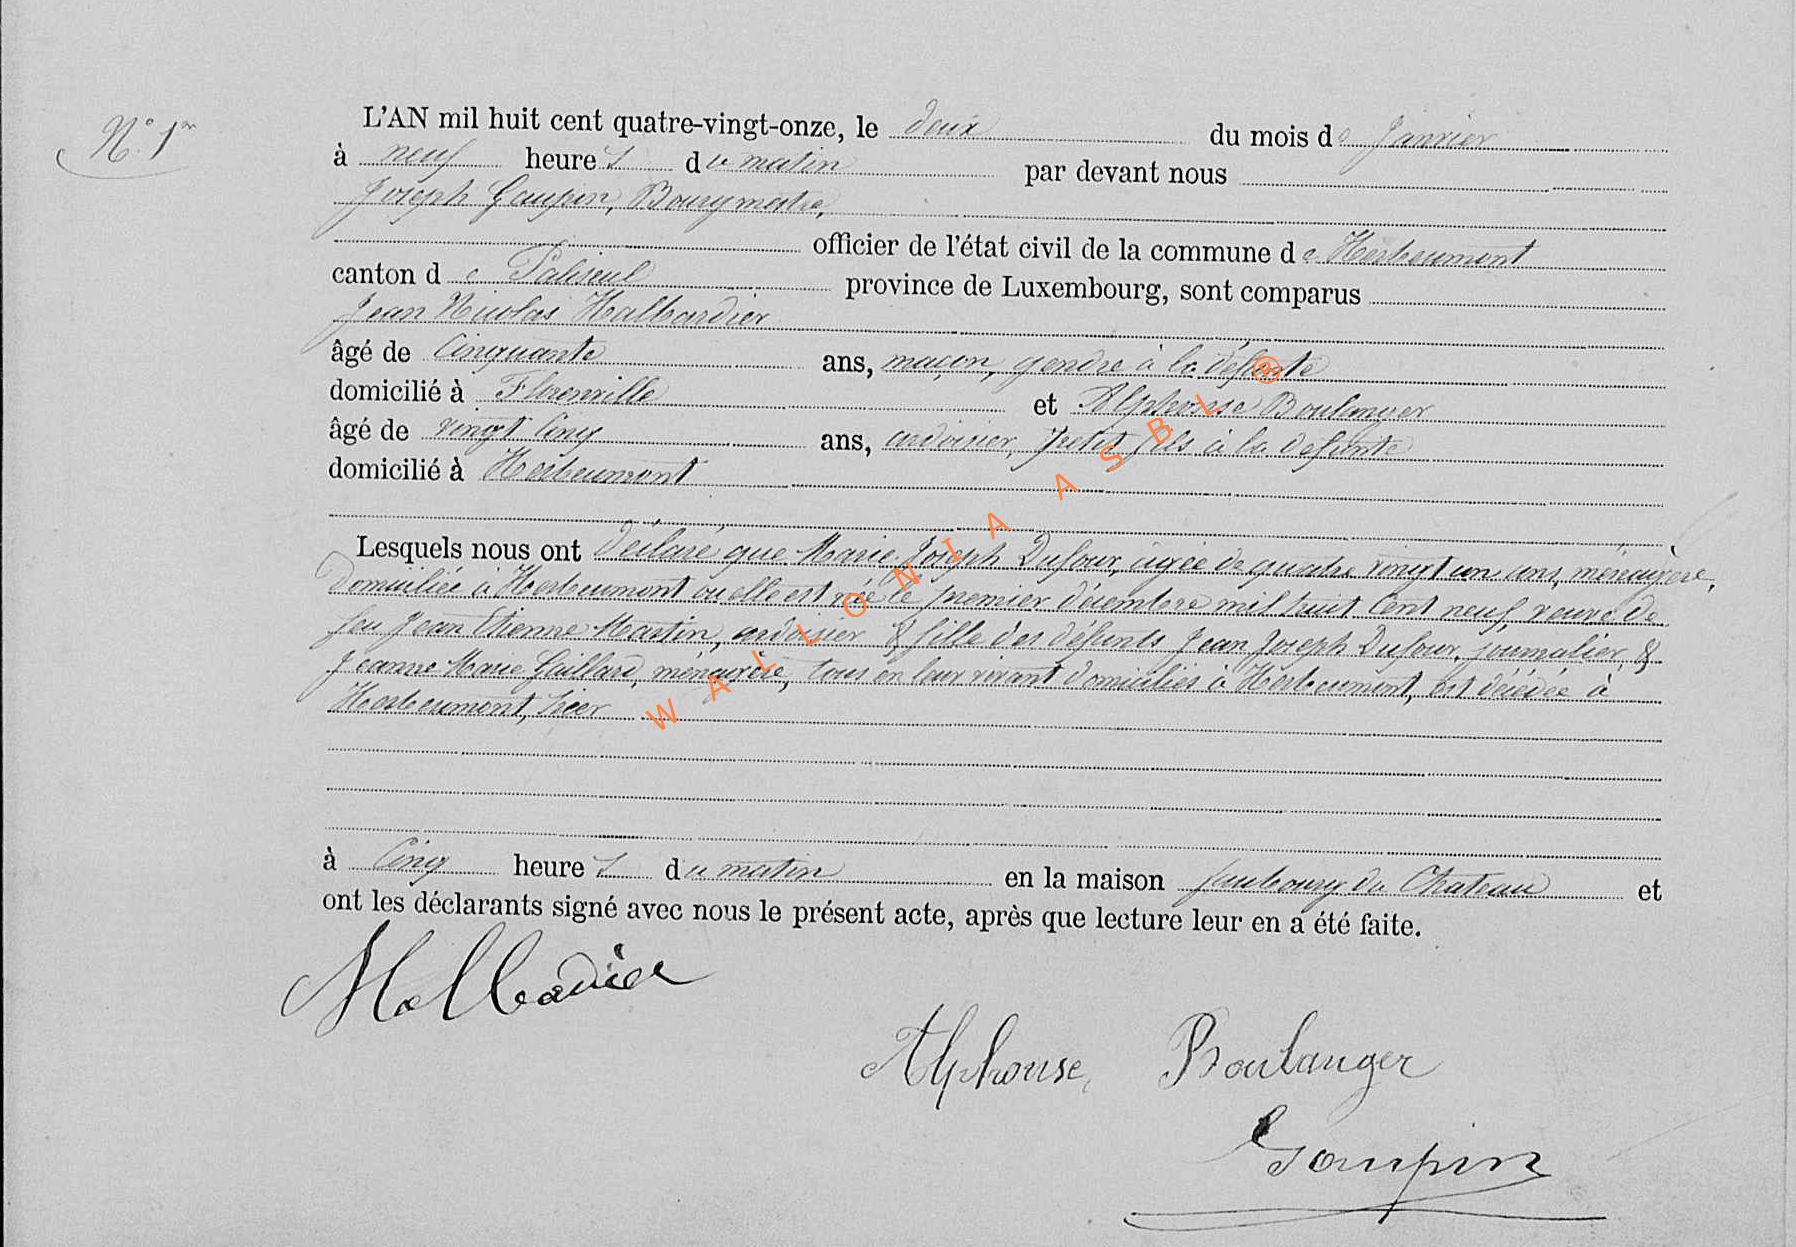 N.° 1er
L'AN mil huit cent quatre-vingt-onze, le deux du mois de Janvier
à neuf heures du matin par devant nous
Joseph Goupin, Bourgmestre,
officier de l'état civil de la commune de Herbeumont
canton de Paliseul province de Luxembourg, sont comparus
Jean Nicolas Halbardier
âgé de Cinquante ans, maçon, gendre à la défunte
domicilié à Florenville et Alphonse Boulanger
âgé de vingt Cinq ans, ardoisier, petit fils à la defunte
domicilié à Herbeumont
Lesquels nous ont déclaré que Marie Joseph Dufour, agée de quatre vingt un ans, ménagère,
domiciliée à Herbeumont ou elle est née le premier décembre mil huit Cent neuf, veuve de
feu Jean Etienne Martin, ardoisier & fille des défunts Jean Joseph Dufour, journalier, &
Jeanne Marie Gaillard, ménagère, tous en leur vivant domiciliés à Herbeumont, est décédée à
Herbeumont, hier
à Cinq heures du matin en la maison faubourg du Chateau et
ont les déclarants signé avec nous le présent acte, après que lecture leur en a été faite.
Halbardier
Alphonse Boulanger
Goupin
WALLONIA ASBL ®